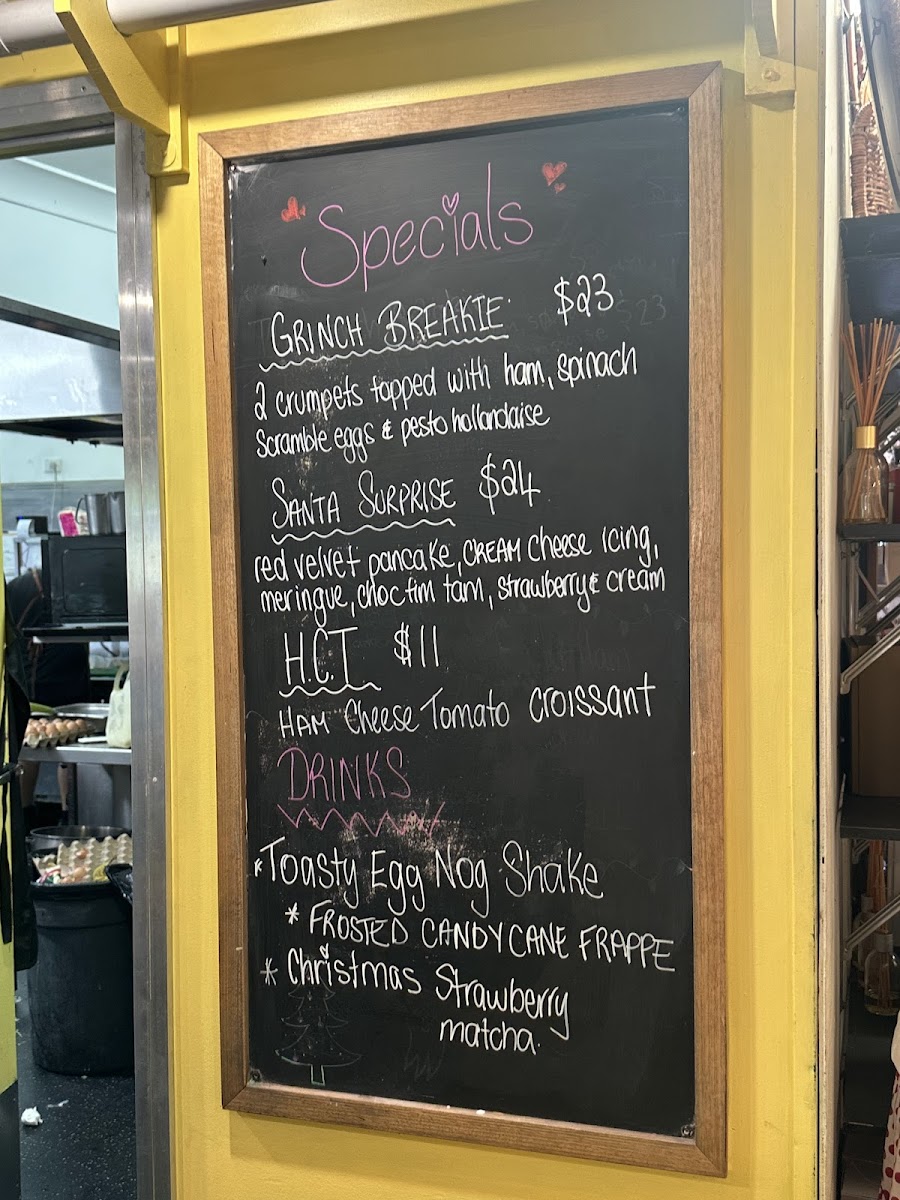 Specials
GRINCH BREAKIE $23
2 crumpets topped with ham, spinach
scramble eggs & pesto hollandaise
SANTA SURPRISE $24
red velvet pancake, CREAM cheese icing,
meringue, choc tim tam, strawberry & cream
H.C.T $11
HAM Cheese Tomato croissant
DRINKS
* Toasty Egg Nog Shake
* FROSTED CANDYCANE FRAPPE
* Christmas Strawberry
matcha.